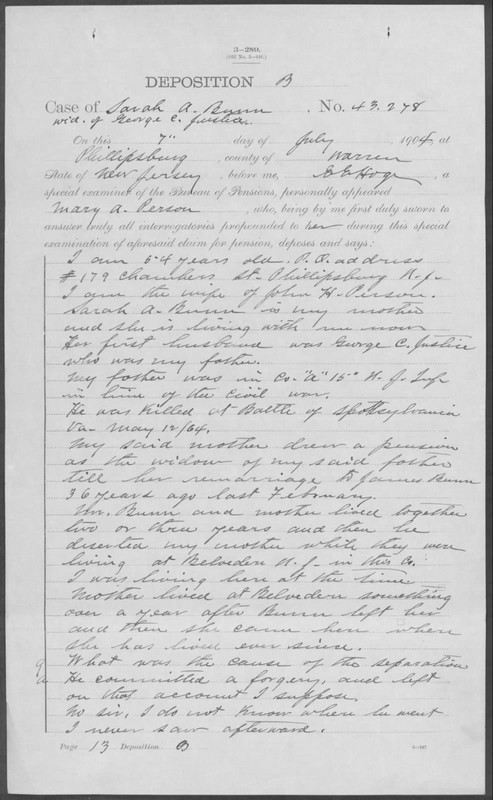 3-280.
DEPOSITION B
Case of Sarah A. Bunn No. 43,278
wid. of George C. Justice
On this 7" day of July, 1904, at
Phillipsburg, county of Warren
State of New Jersey, before me, E. E. Hoge, a
special examiner of the Bureau of Pensions, personally appeared
Mary A. Person, who, being by me first duly sworn to
answer truly all interrogatories propounded to her during this special
examination of aforesaid claim for pension, deposes and says:
I am 54 years old. P.O. address
#179 Chambers St. Phillipsburg N.J.
I am the wife of John H. Person.
Sarah A. Bunn is my mother
and she is living with me now
Her first husband was George C. Justice
who was my father.
My father was in Co. "A" 15" N.J. Inf
in time of the Civil war.
He was killed at Battle of Spottsylvania
Va- May 12/64.
My said mother drew a pension
as the widow of my said father
till her remarriage to James Bunn
36 years ago last February.
Mr. Bunn and mother lived together
two or three years and then he
deserted my mother while they were
living at Belvidere N.J. in this Co.
I was living here at the time
Mother lived at Belvidere something
over a year after Bunn left her
and then she came here where
she has lived ever since.
Q What was the cause of the separation
A He committed a forgery, and left
on that account I suppose
No sir, I do not know where he went
I never saw afterward.
Page 13 Deposition B